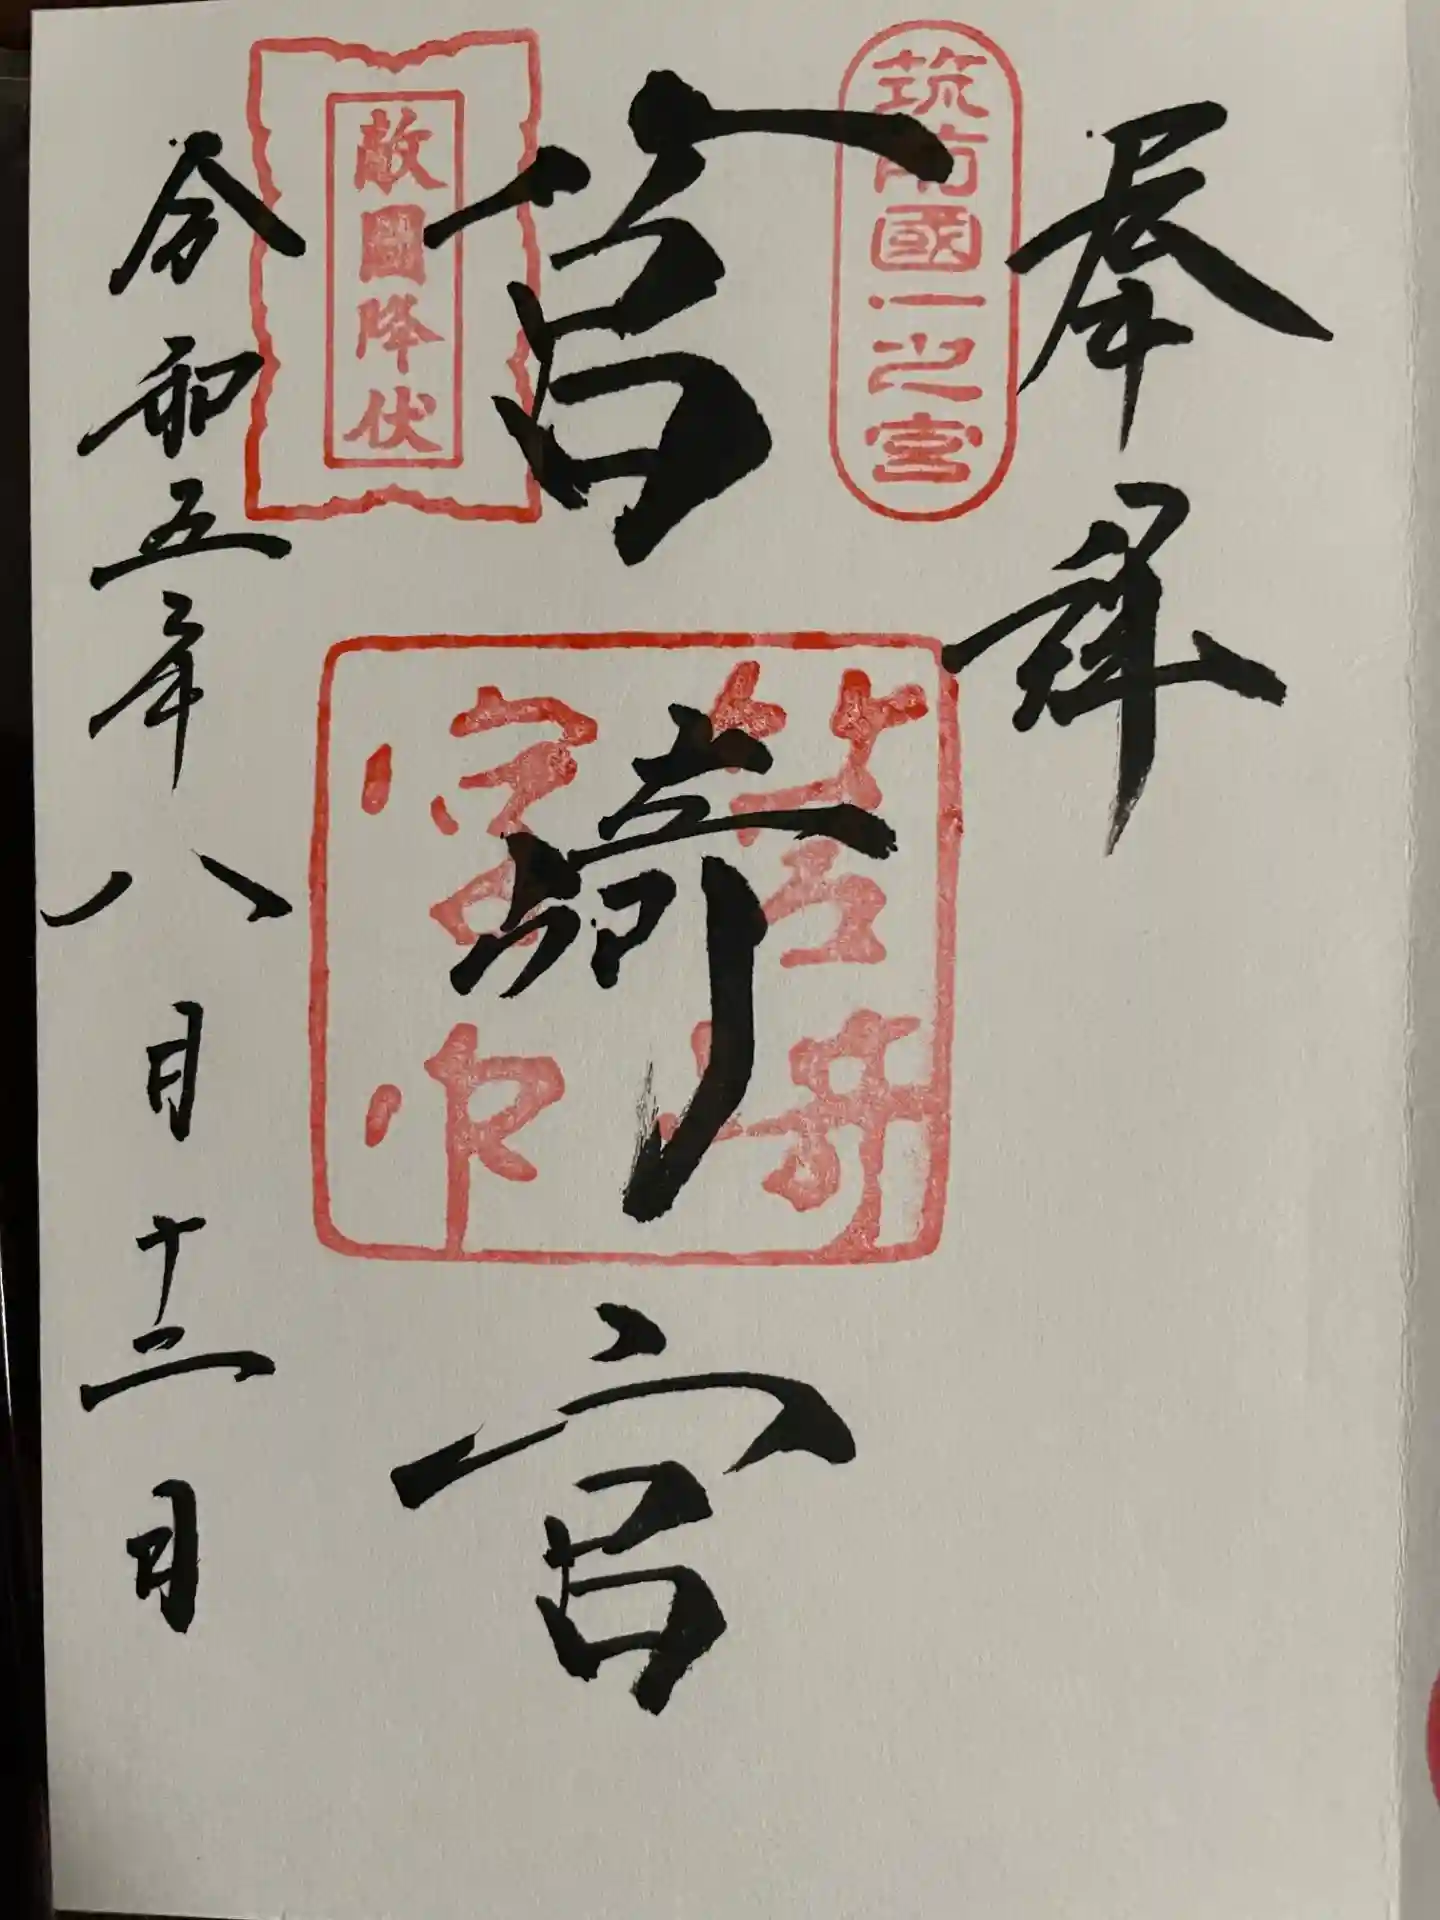 奉拝
筑前國一之宮
筥﨑宮
筥崎
宮印
敵國降伏
令和五年八月十二日